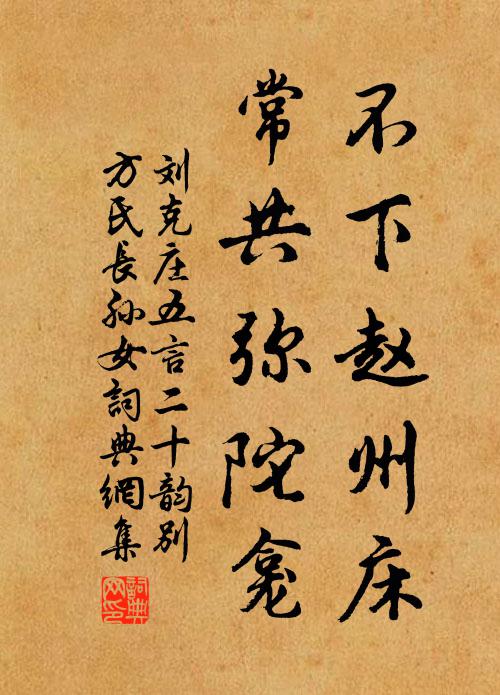 不下赵州床
常共弥陀龛
刘克庄五言二十韵别
方氏長孙女詞典網集
詞典
网印